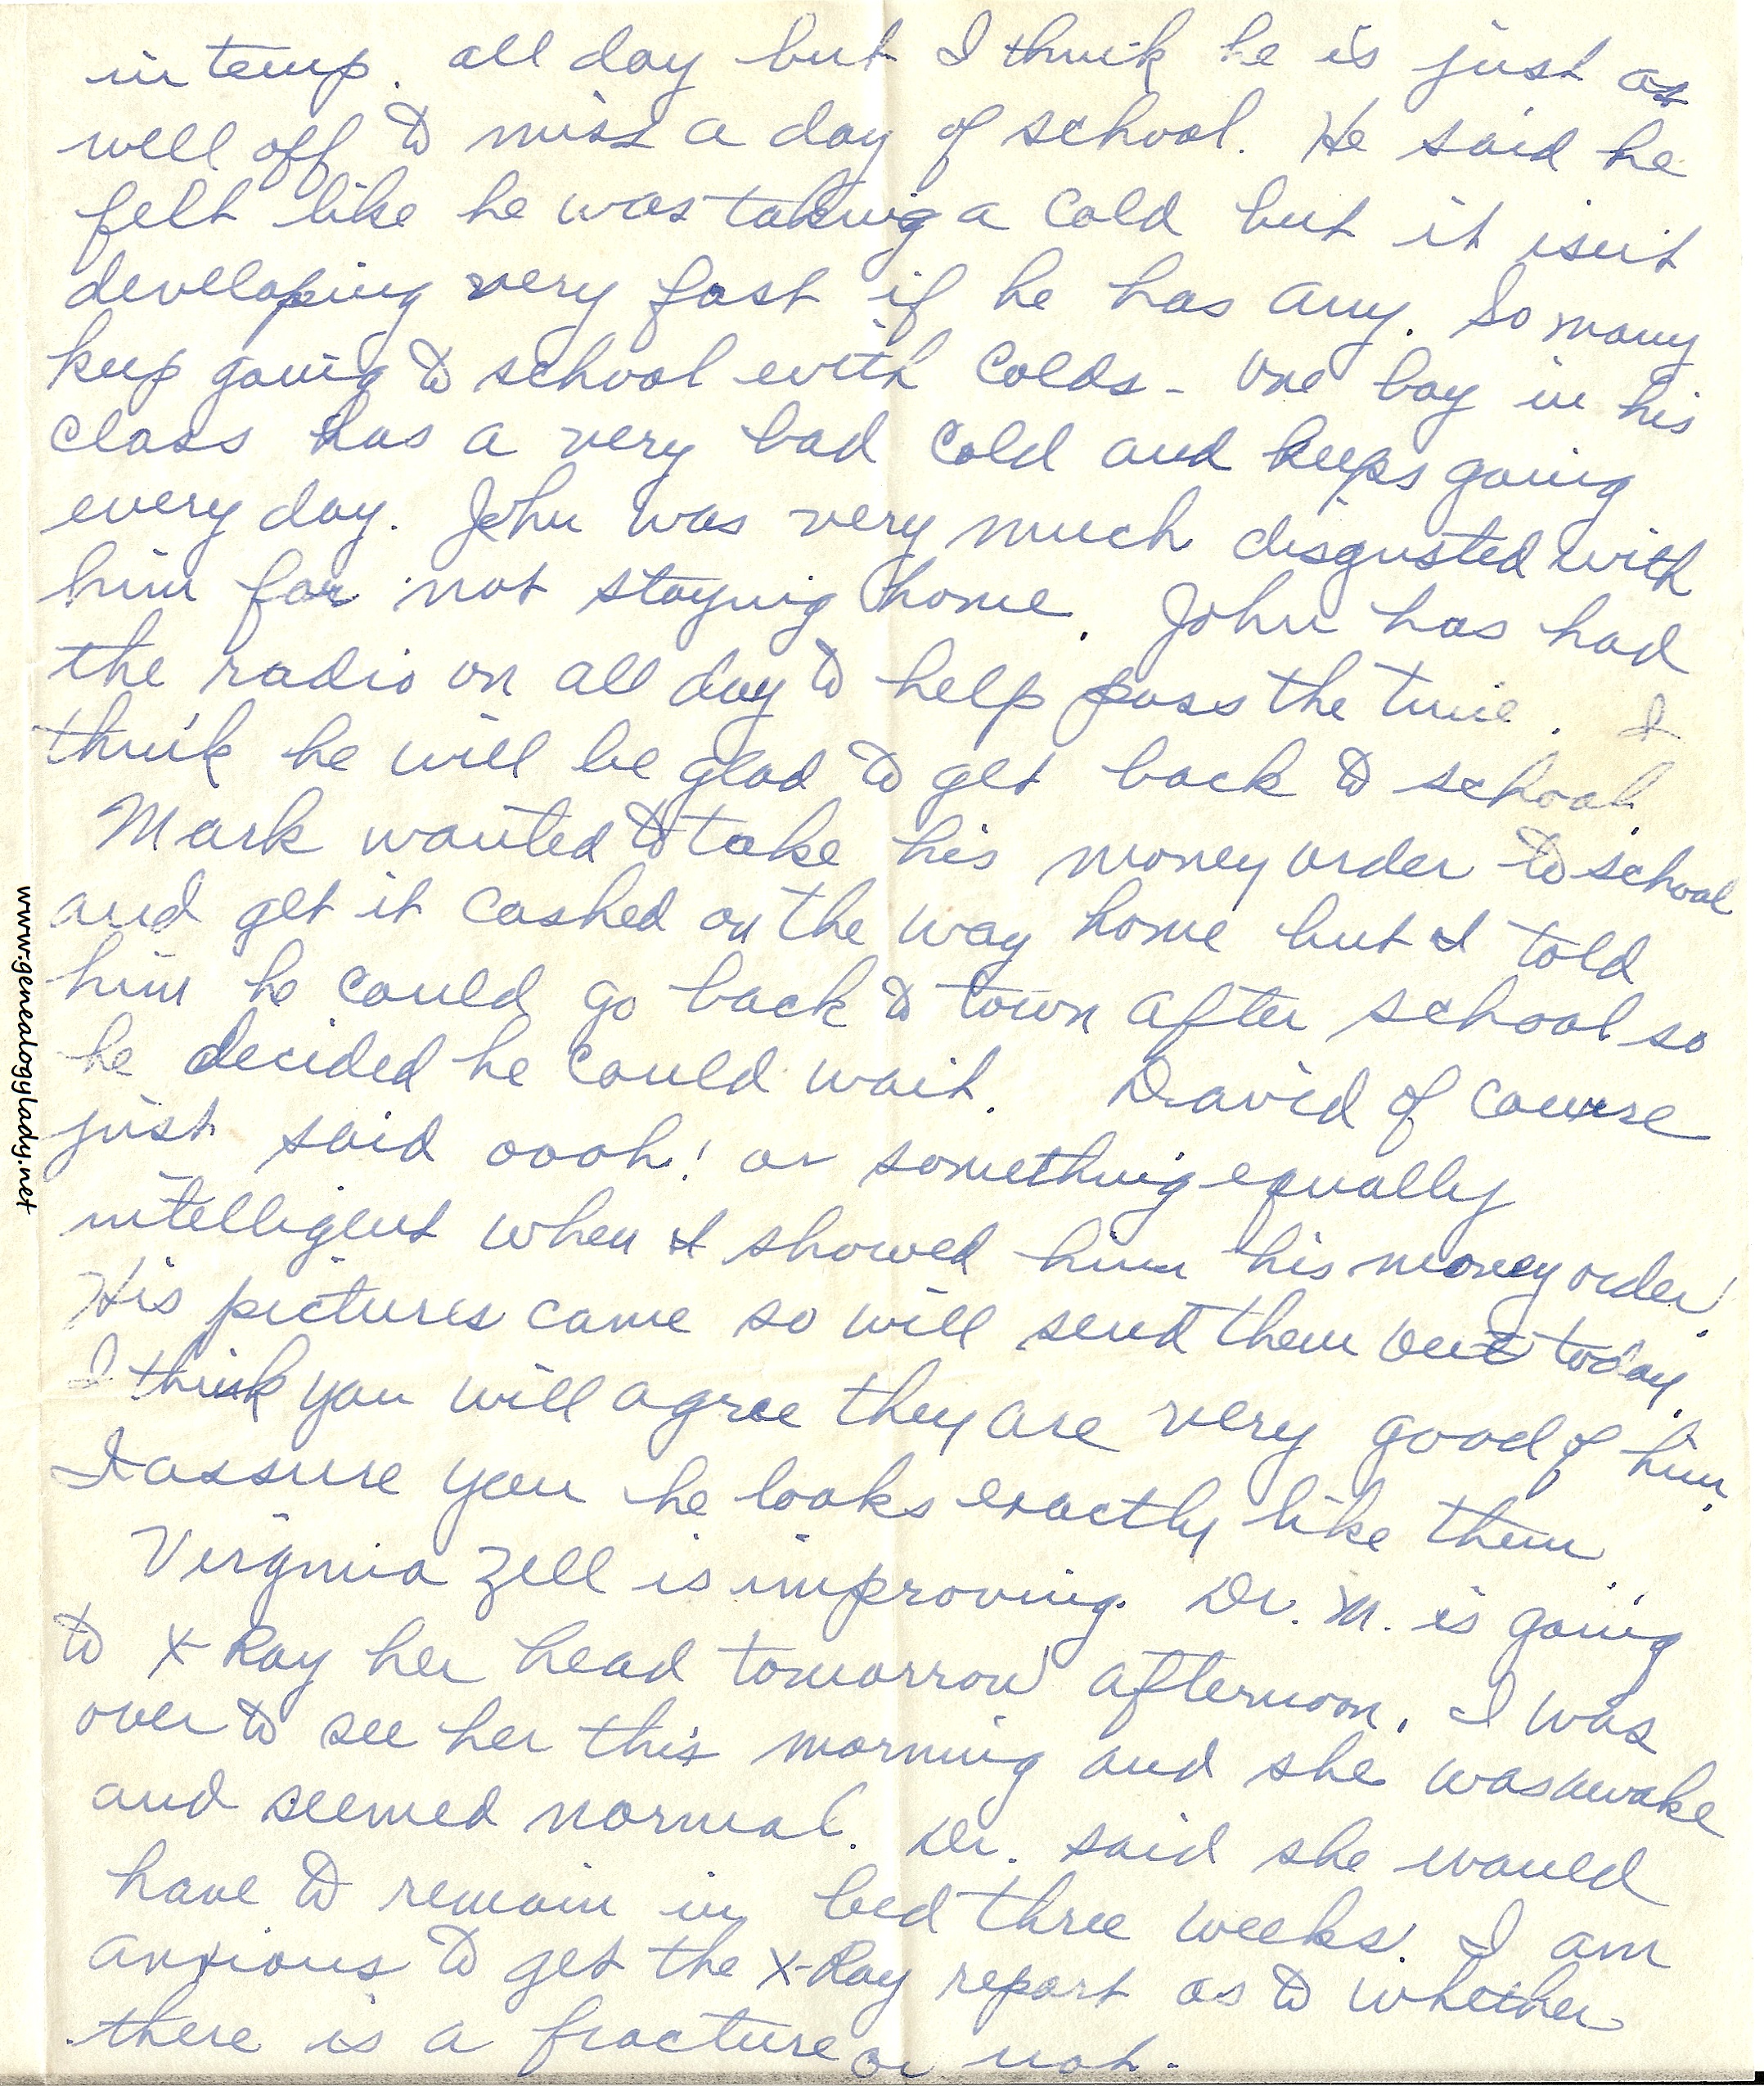 in temp. all day but I think he is just as
well off to miss a day of school. He said he
felt like he was taking a cold but it isn't
developing very fast if he has any. So many
keep going to school with colds - one boy in his
class has a very bad cold and keeps going
every day. John was very much disgusted with
him for not staying home. John has had
the radio on all day to help pass the time. I
think he will be glad to get back to school.
Mark wanted to take his money order to school
and get it cashed on the way home but I told
him he could go back to town after school so
he decided he could wait. David of course
just said oooh! or something equally
intelligent when I showed him his money order!
His pictures came so will send them out today.
I think you will agree they are very good of him.
I assure you he looks exactly like them
Virginia Zell is improving. Dr. M. is going
to X-Ray her head tomorrow afternoon. I was
over to see her this morning and she was awake
and seemed normal. Dr. said she would
have to remain in bed three weeks. I am
anxious to get the X-Ray report as to whether
there is a fracture or not.
www.genealogylady.net